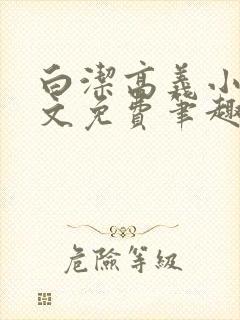 白潔高義小
文免費筆趣
危險等級